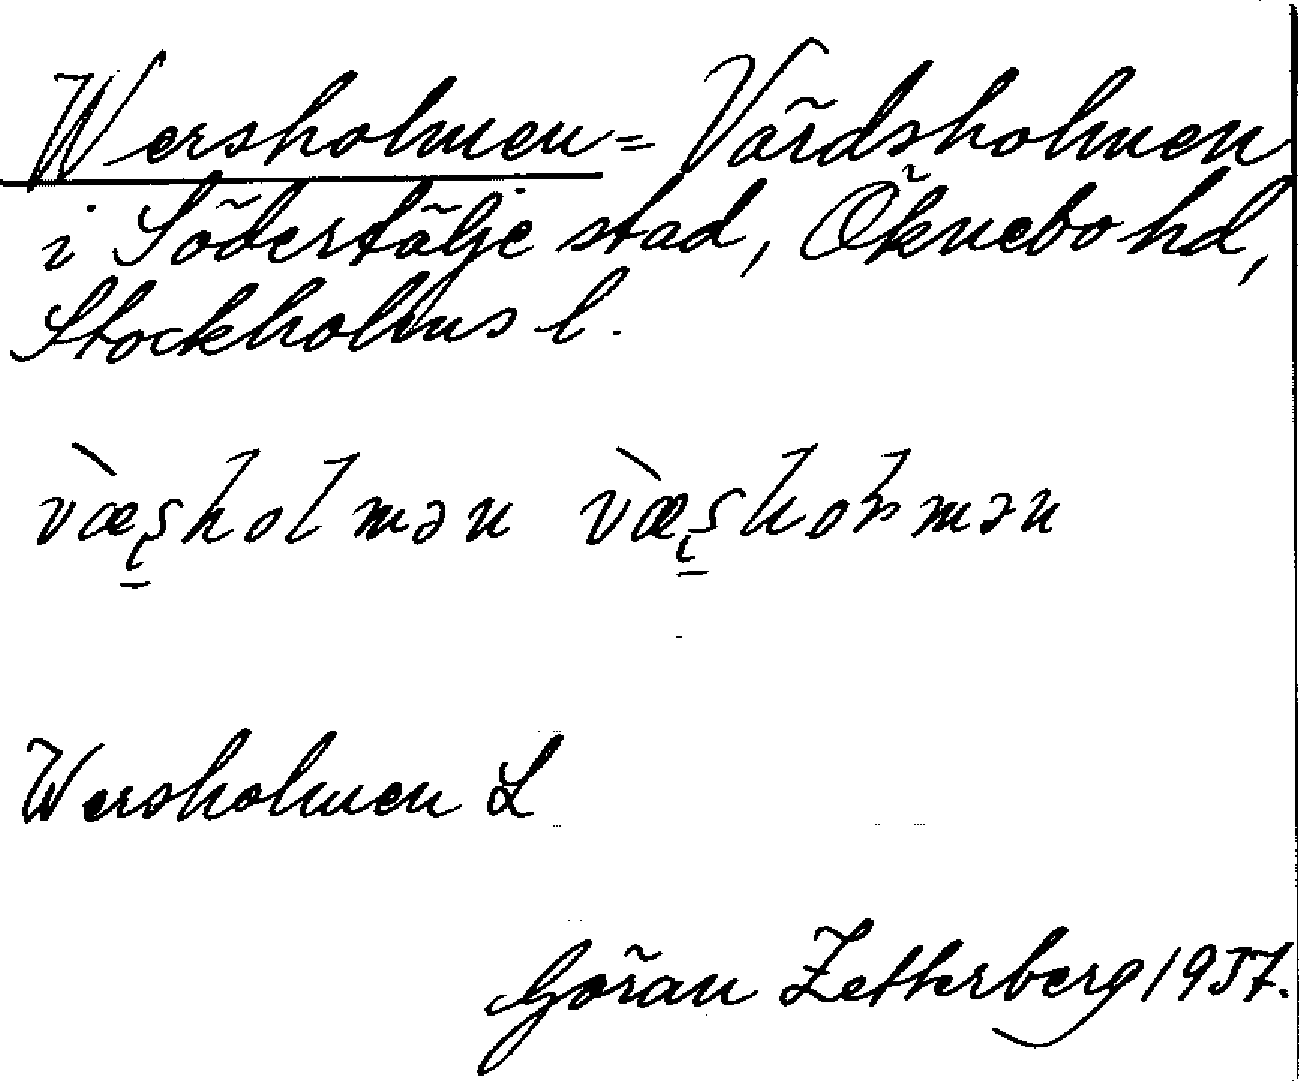 Wersholmen = Värdsholmen
i Södertälje stad, Öknebo hd,
Stockholms l.
væ̀ʂholmən væ̀ʂhoɫmən
Wersholmen L
Göran Zetterberg 1937.